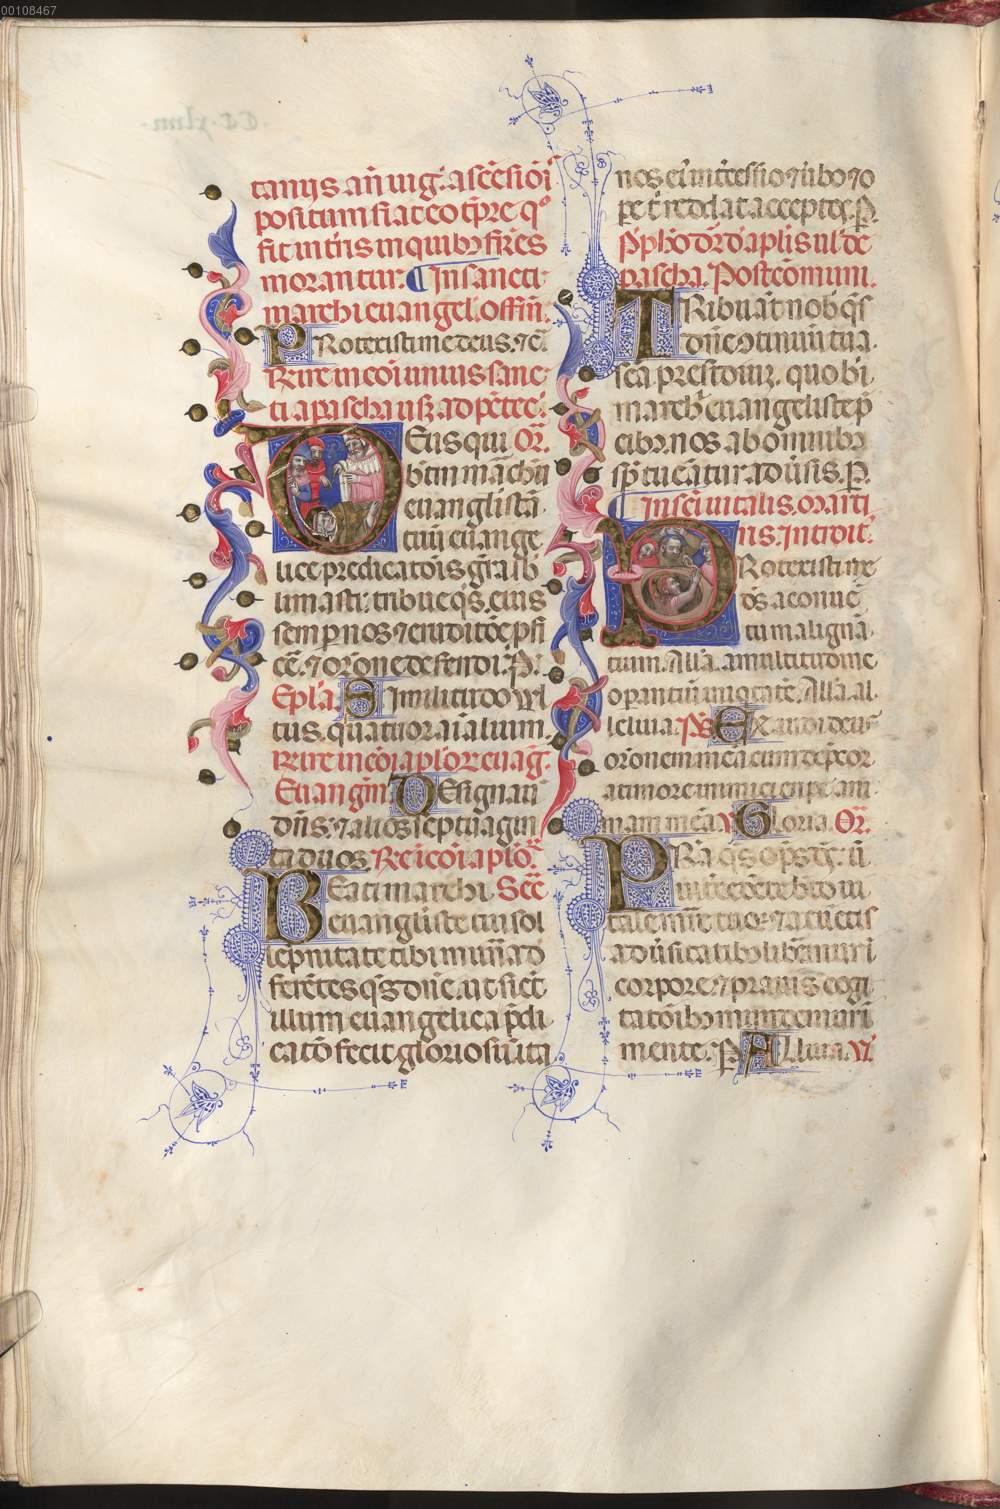 00108467
tanijs. añ uig. ascēsiōi
positum fiat eo tp̄re qͦ
fit in t̄ris in quibꝫ fr̄es
morantur. ¶ In sancti
marchi euangel. offm̄.
PRotexisti me deus. ⁊c̄.
Re ī re in cōi unius sanc
ti a pascha usqꝫ ad pētec.
DEus qui Or̄.
btm̄ marchū
euanglistā
tuū euange
lice predicatōis grā sb
limasti: tribue q̄s. eius
semꝑ nos ⁊ eruditōe ꝓfi
cē. ⁊ orōne defendi. P.
Epl'a. Similitudo vl
tus. quatuor aīalium.
Euangm̄. DEsignauit
dn̄s. ⁊ alios septuagin
ta duos. Re ī cōi aplor̄.
BEati marchi Sec̄
euangliste tui sol
lēpnitate tibi mun̄a d
ferētes q̄s dn̄e. ut sicut
illum euangelica p̄di
catō fecit gloriosū. ita
nos ei intercessio ⁊ ūbo ⁊ o
pe t̄ reddat acceptos. P.
pascha. Postcōmuni.
TRibuāt nob q̄s
dn̄e cōtinuū tua
sc̄a presidiū. quo bi
marchi euangliste p̄
cibꝫ. nos ab omnibꝫ
sp̄ tueātur aduersis. P.
¶ In sc̄i uitalis. marti
ris. Introit.
PRotexisti me
ds̄ a conuē
tu maligna
tium. All'a. a multitudine
operantiū iniqtatē. All'a. al
leluia. Ps. Exaudi deus
orōnem meā cum dep̄cor
a timore inimici eripe am
mam meā. V. Gloria. Or̄.
PRa q̄s op̄s
ut intercedēte bto ui
tale mr̄e tuo. ⁊ a cūctis
aduersitatibꝫ liberemuri
corpore. ⁊ prauis cogi
tatōibꝫ mundemuri
mente. P. Alluia. V.